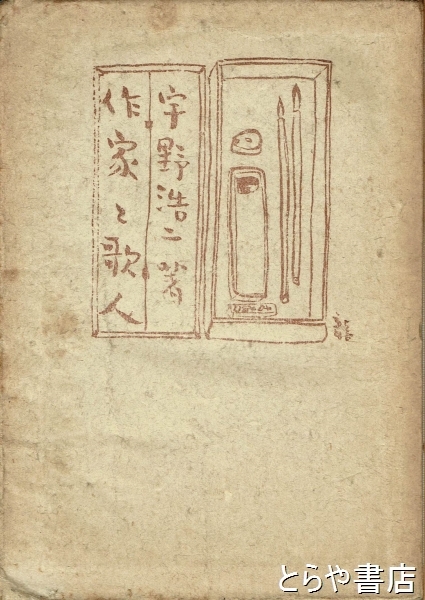 宇野浩二著
作家と歌人
とらや書店